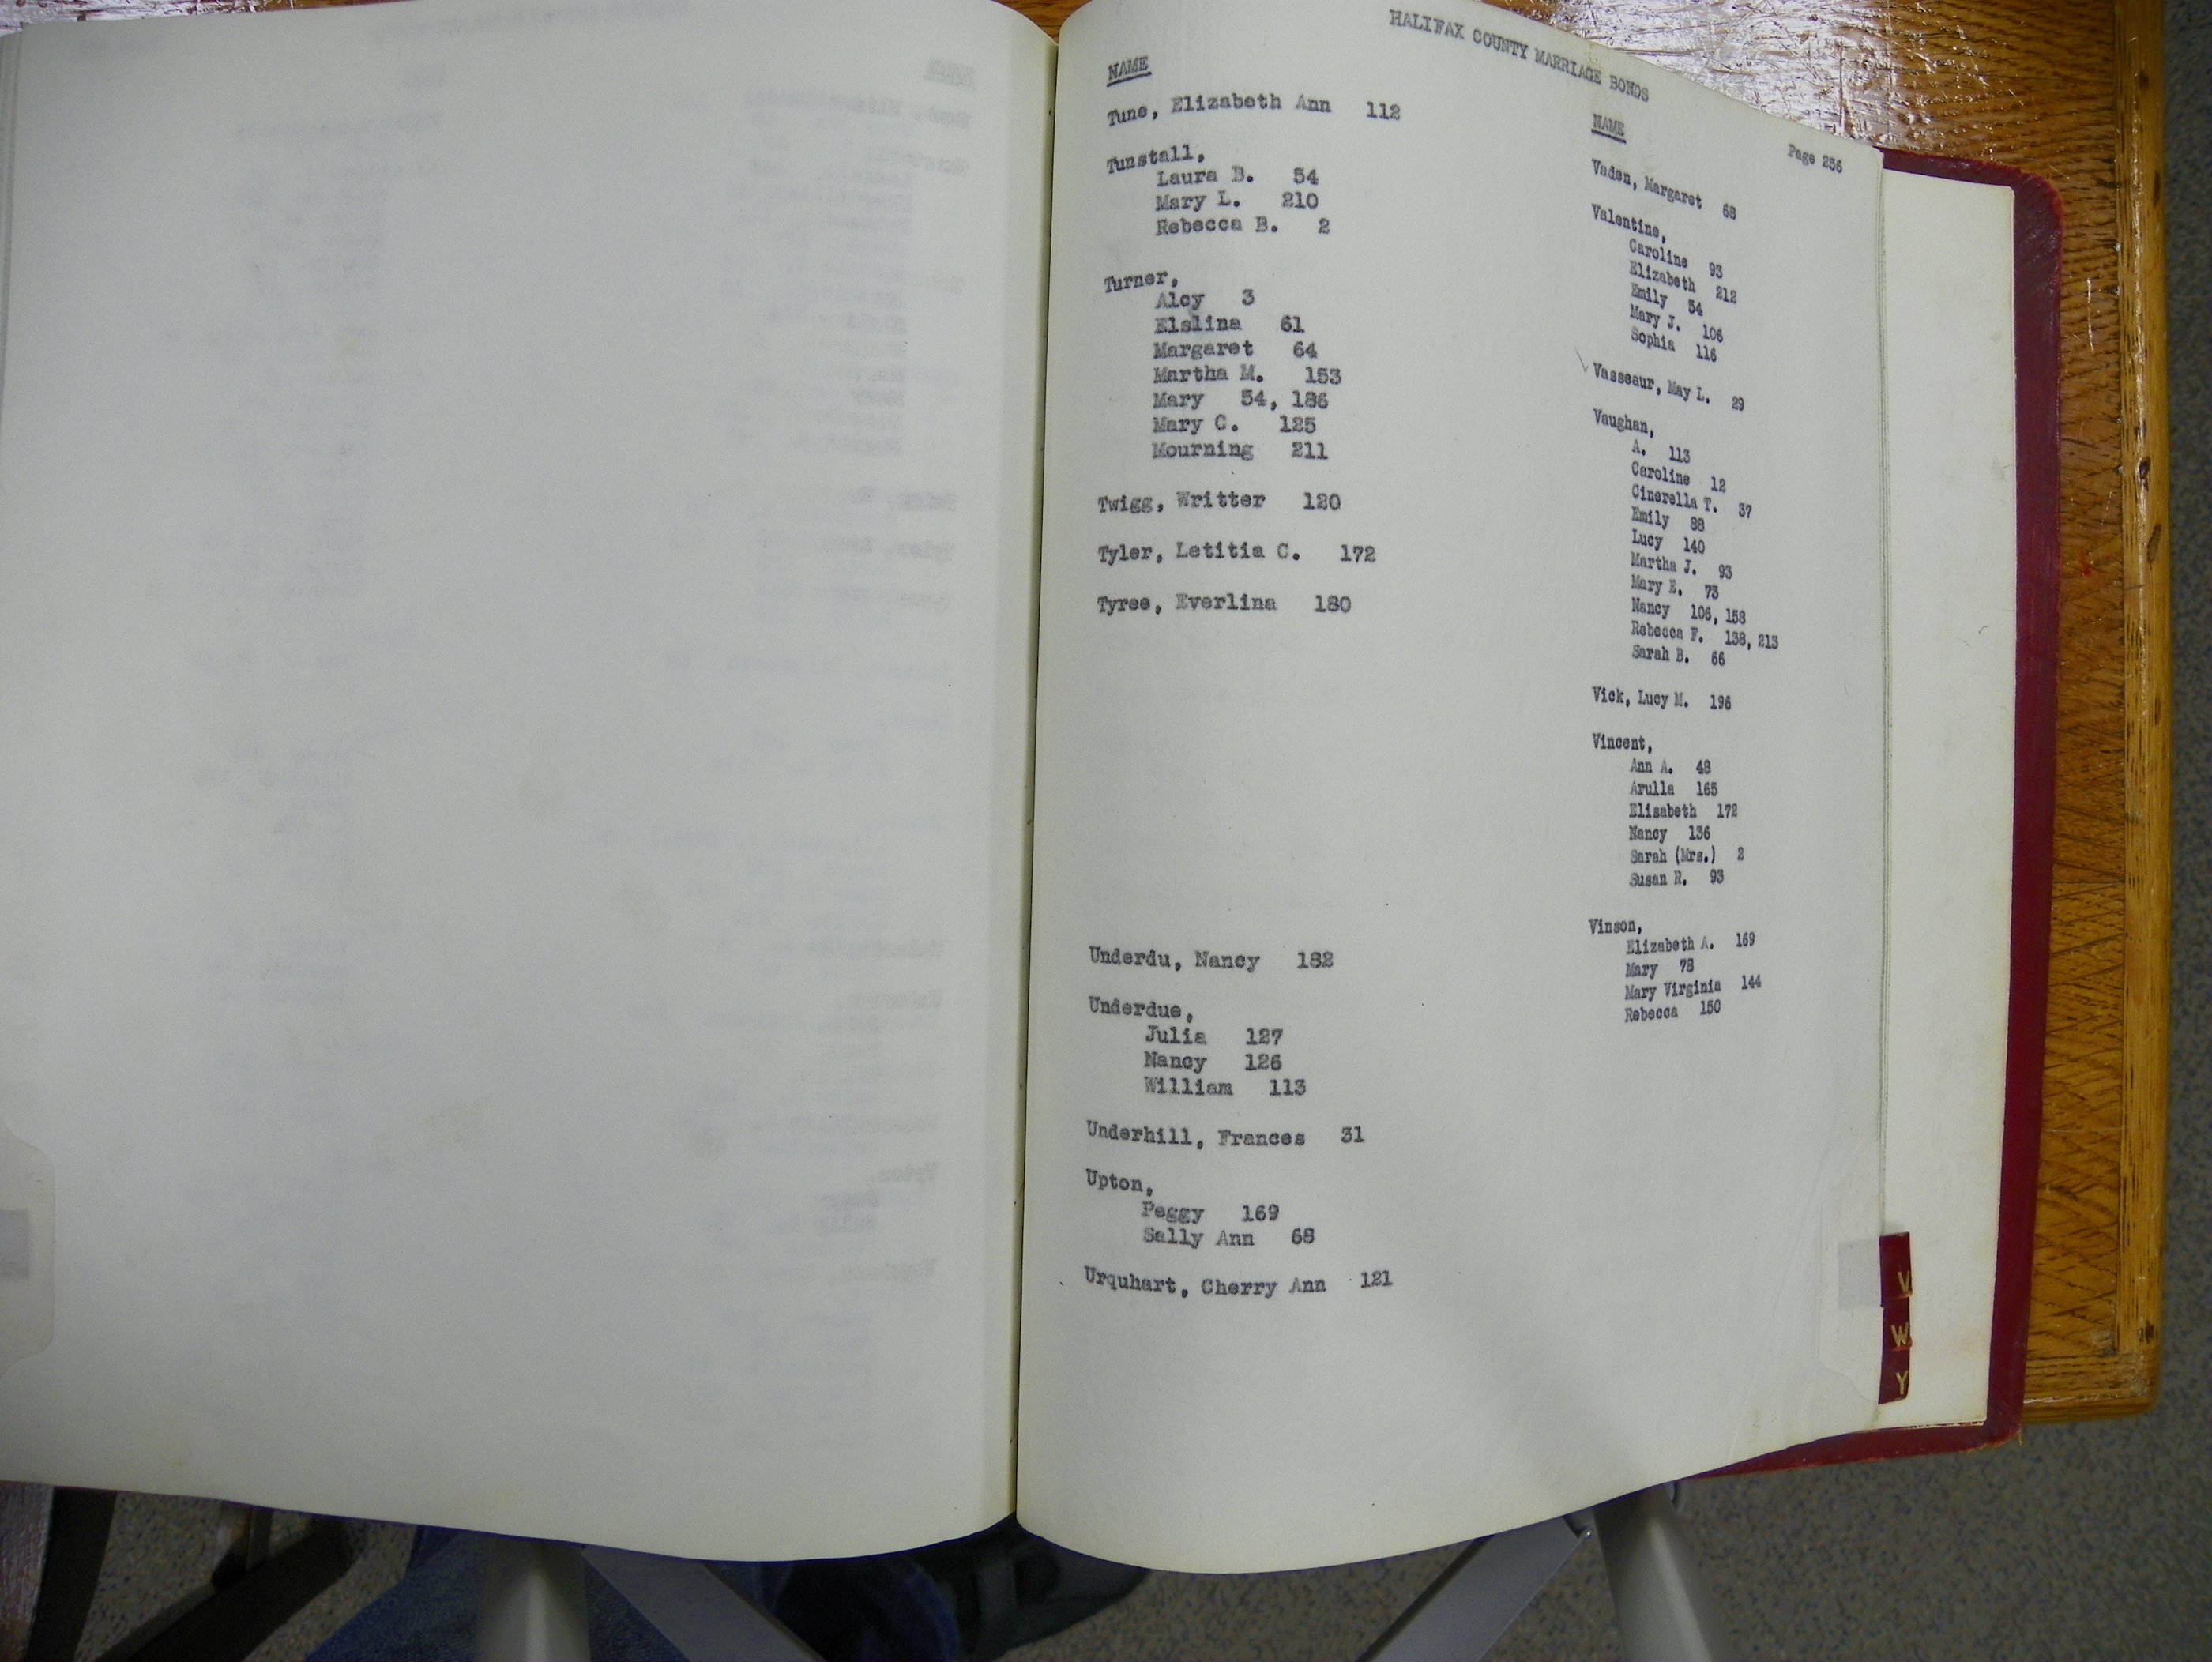 HALIFAX COUNTY MARRIAGE BONDS
Page 236
NAME
Tune, Elizabeth Ann 112
Tunstall,
Laura B. 54
Mary L. 210
Rebecca B. 2
Turner,
Alcy 3
Elslina 61
Margaret 64
Martha M. 153
Mary 54, 186
Mary C. 125
Mourning 211
Twigg, Writter 120
Tyler, Letitia C. 172
Tyree, Everlina 180
Underdu, Nancy 182
Underdue,
Julia 127
Nancy 126
William 113
Underhill, Frances 31
Upton,
Peggy 169
Sally Ann 68
Urquhart, Cherry Ann 121
NAME
Vaden, Margaret 68
Valentine,
Caroline 93
Elizabeth 212
Emily 54
Mary J. 106
Sophia 116
Vasseaur, May L. 29
Vaughan,
A. 113
Caroline 12
Cinerella T. 37
Emily 88
Lucy 140
Martha J. 93
Mary E. 73
Nancy 106, 158
Rebecca F. 138, 213
Sarah B. 66
Vick, Lucy M. 196
Vincent,
Ann A. 48
Arulla 165
Elisabeth 172
Nancy 136
Sarah (Mrs.) 2
Susan R. 93
Vinson,
Elizabeth A. 169
Mary 78
Mary Virginia 144
Rebecca 150
V
W
Y